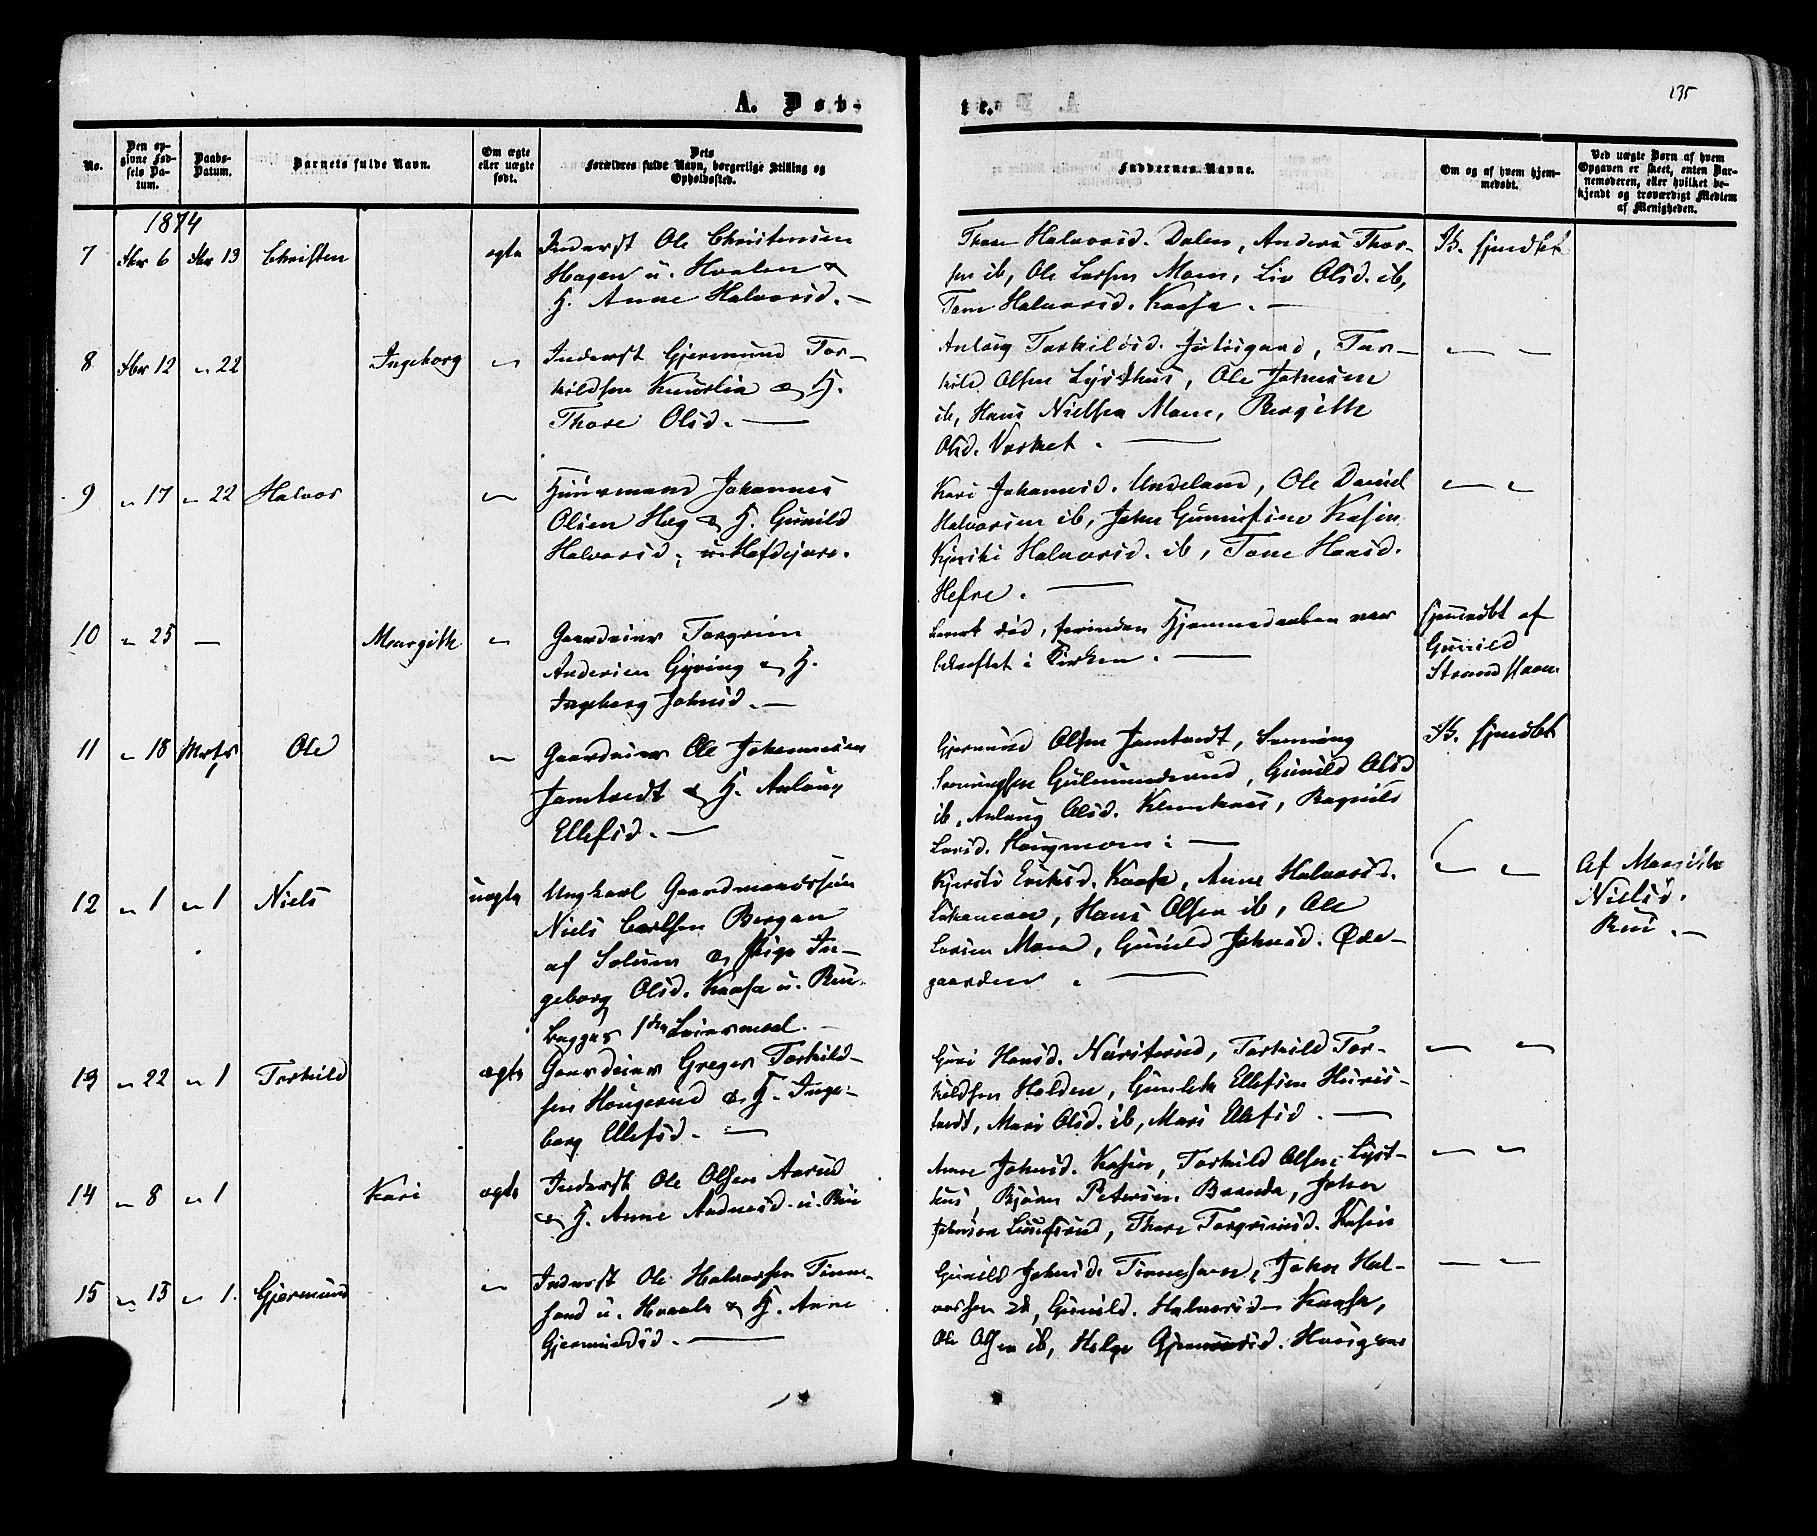 A. Døb-
te.
135
No.
Den op-
givne Fød-
sels Da-
tum.
Daabs-
Datum.
Barnets fulde Navn.
Om ægte
eller uægte
født.
Dets
Forældres fulde Navn, borgerlige Stilling og
Opholdssted.
Faddernes Navne.
Om og af hvem hjem-
medøbt.
Ved uægte Børn af hvem
Opgaven er skeet, enten Bar-
nemoderen, eller hvilket be-
kjendt og troværdigt Medlem
af Menigheden.
1874
7 Fbr 6 Fbr 13 Christen ægte
Inderst Ole Christensen
Hagen u. Hvalen &
H. Anne Halvorsd. —
Thone Halvorsd. Dalen, Anders Thor-
sen ib, Ole Larsen Moen, Liv Olsd. ib,
Tone Halvorsd. Kaasa. —
St. hjmdbt
8 Fbr 12 " 22 Ingeborg "
Inderst Gjermund Tor-
kildsen Knuslia & H.
Thore Olsd. —
Anlaug Torkildsd. , Tor-
kild Olsen Lysthus, Ole Johnsen
ib, Hans Nielsen Moen, Bergith
Olsd. Værket. —
" "
9 " 17 " 22 Halvor "
Huusmand Johannes
Olsen Hæg & H. Gunild
Halvorsd.
Kari Johannesd. Undeland, Ole Daniel
Halvorsen ib, John Gunnufsen Kasin
Kjersti Halvorsd. ib, Tone Hansd.
Hefre. —
" "
10 " 25 — Margith "
Gaardeier Torgrim
Andersen Gyving & H.
Ingeborg Johnsd. —
Barnet død, forinden Hjemmedaaben var
bekræftet i Kirken. —
hjmdbt af
Gunild
Strand
11 " 18 Ole "
Gaardeier Ole Johannesen
Jamtvedt & H. Anlaug
Ellefsd. —
Gjermund Olsen Jamtvedt, Sveinung
Sveinungsen , Gunild Olsd
ib, Anlaug Olsd. , Ragnild
Larsd. Haugmoen. —
St. hjmdbt
12 " 1 " 1 Niels uægte
Ungkarl Gaardmandssøn
Niels Carlsen Bergan
af Solum & Pige In-
geborg Olsd. Kaasa u. Rui.
Begges 1ste Leiermaal. —
Kjersti Eriksd. Kaasa, Anne Halvorsd.
, Hans Olsen ib, Ole
Larsen Moen, Gunild Johnsd. Øde-
gaarden. —
" "
Af Margithe
Nielsd.
Rui. —
13 " 22 " 1 Torkild ægte
Gaardeier Greger Torkild-
sen Haugerud & H. Inge-
borg Ellefsd. —
Guri Hansd. , Torkild Tor-
kildsen Holden, Gunlek Ellefsen Huris-
tvedt, Mari Olsd. ib, Mari Ellefsd. —
" "
14 " 8 " 1 Kari ægte
Inderst Ole Olsen Aarud
& H. Anne Andersd. u. Rui
Anne Johnsd. Kasin, Torkild Olsen Lyst-
hus, Bjørn Petersen Brenda, John
Johnsen , Thore Torgrimsd. Kasin
" "
15 " 13 " 1. Gjermund "
Inderst Ole Halvorsen Tinne-
sand u. Hvaala & H. Anne
Gjermundsd. —
Gunild Johnsd. Tinnesand, John Hal-
vorsen ib, Gunild Halvorsd. Kaasa,
Ole Olsen ib, Helge Gjermundsd.
" "